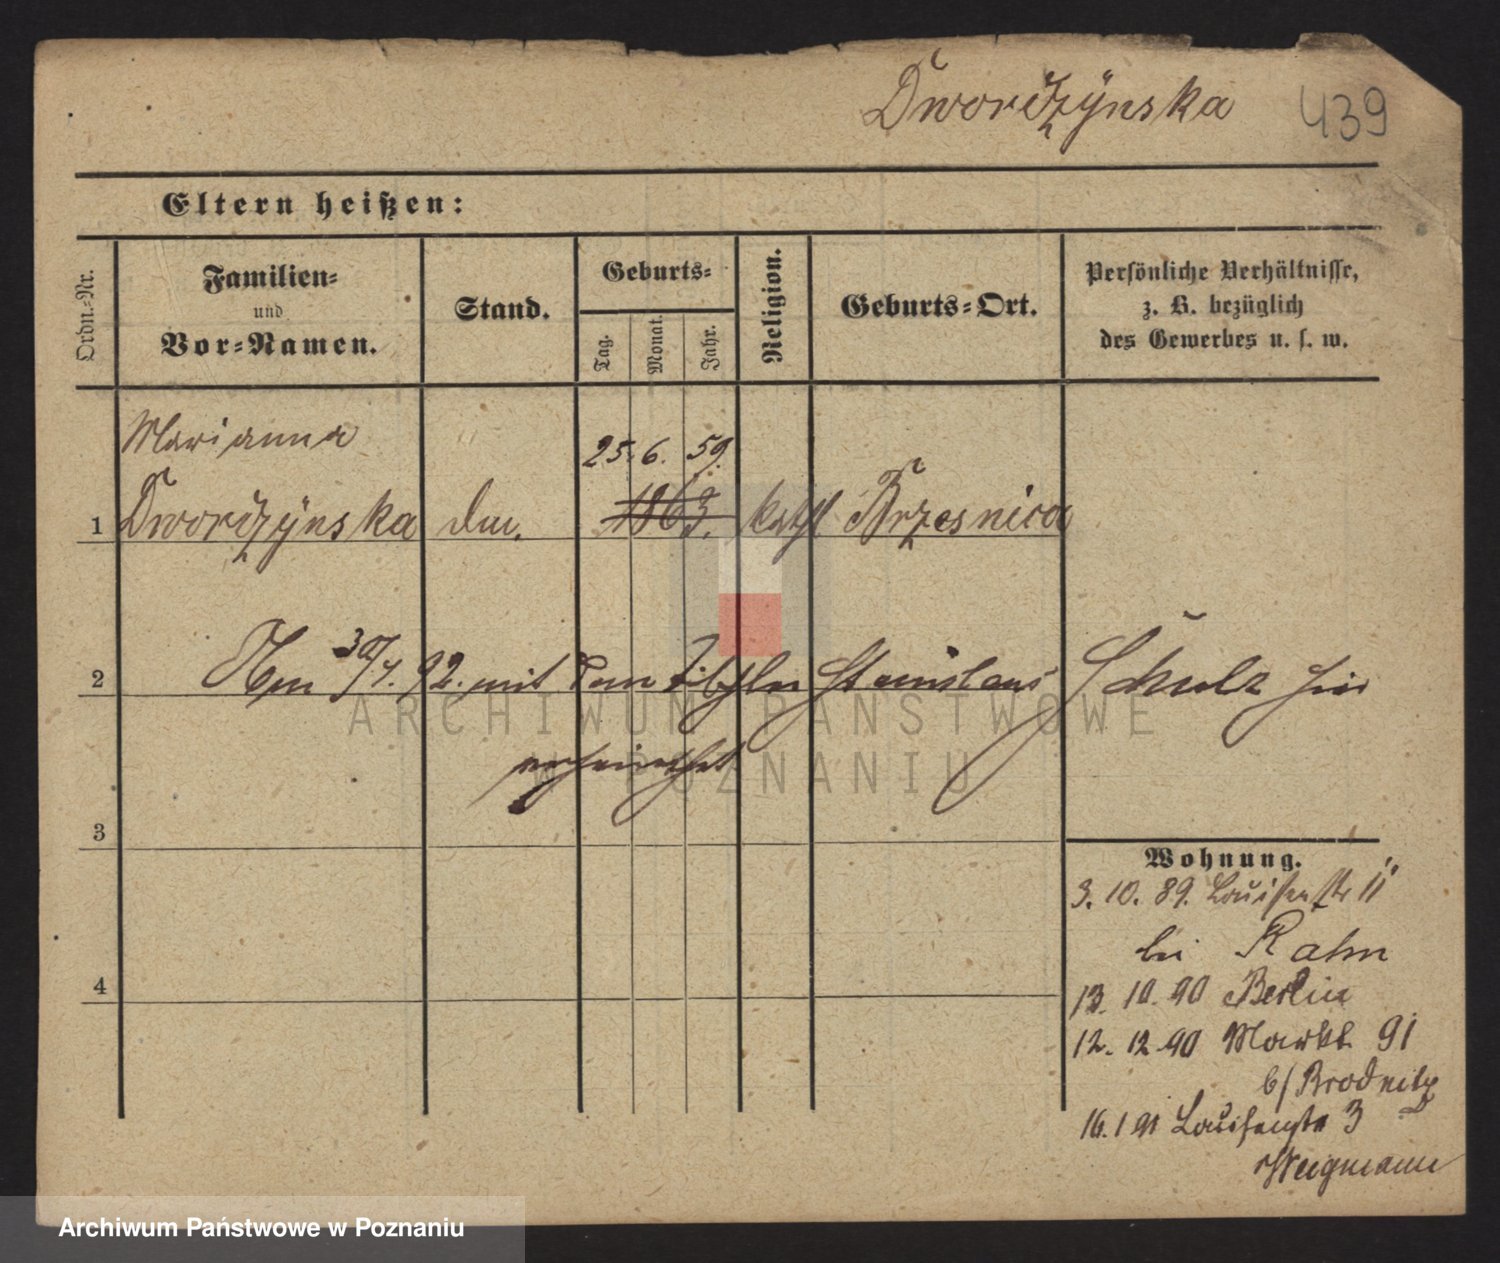 Dwordzÿnska 439
Eltern heißen:
Ordn.-Nr.
Familien-
und
Vor-Namen.
Stand.
Geburts-
Tag.
Monat.
Jahr.
Religion.
Geburts-Ort.
Persönliche Verhältnisse,
z. B. bezüglich
des Gewerbes u. s. w.
Marianna
25. 6. 59.
1 Dwordzÿnska 1863. kath Brzesnica
2 Am 30/7. 92. mit dem Stanislaus Schulz hier
verheirathet
3
Wohnung.
3. 10. 89. Louisenstr 11
bei Rahn
4
13. 10. 90 Berlin
12. 12. 90 Markt 91
b/ Brodnitz
16. 1 91 Louisenstr 3
Wegmann
ARCHIWUM PAŃSTWOWE
W POZNANIU
Archiwum Państwowe w Poznaniu